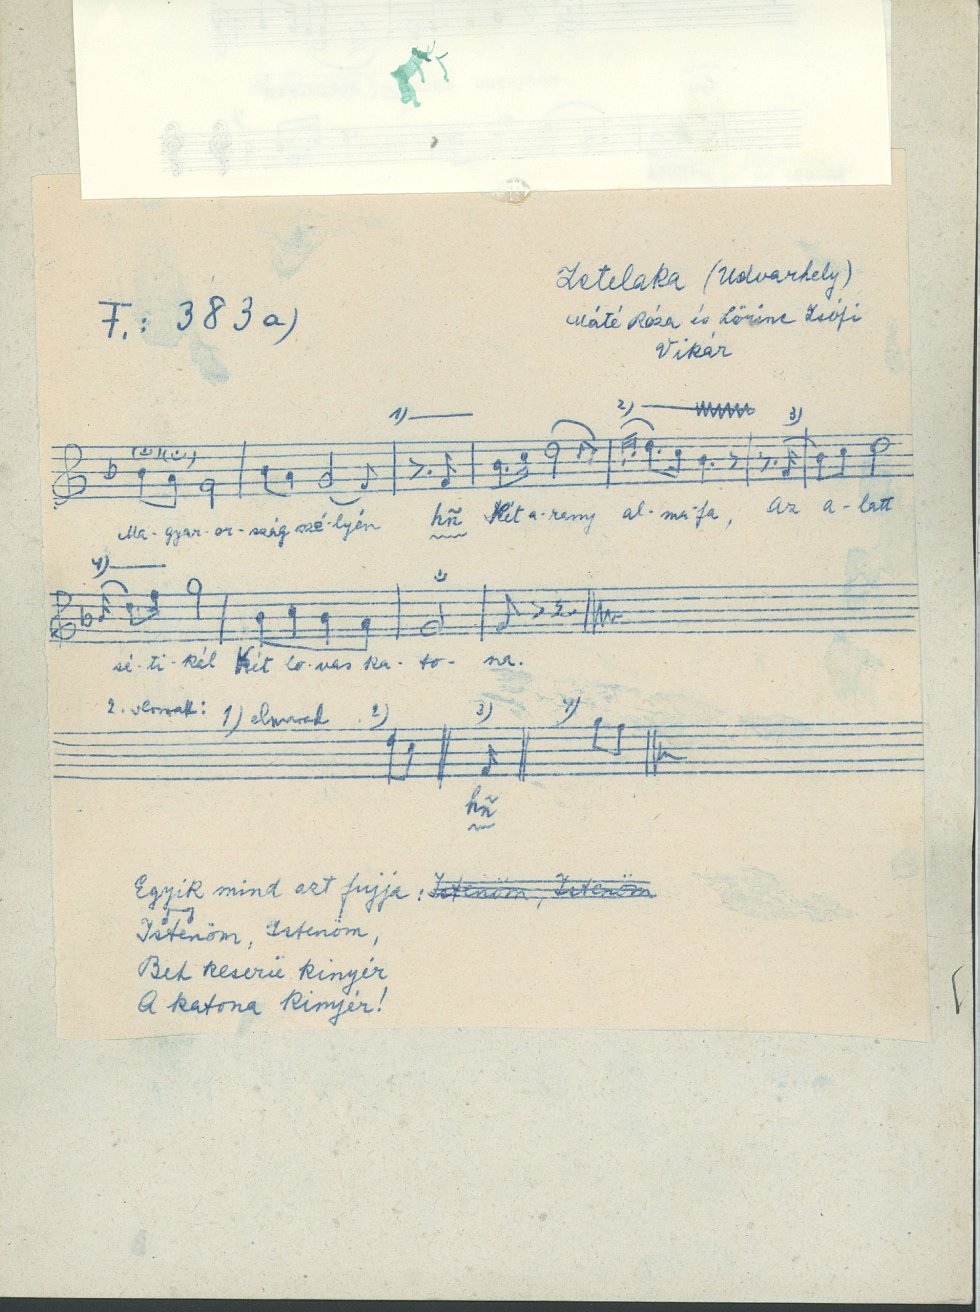 F.: 383 a)
Zetelaka (Udvarhely)
Máté Róza és Lőrinc Zsófi
Vikár
1) 2) 3)
Ma-gyar-or-szág szé-lyén hñ Két a-rany al-ma-fa, Az a-latt
4)
sé-ti-kál Két lo-vas ka-to-na.
2. 1) elmarad 2) 3) 4)
hñ
Egyik mind azt fujja: Istenöm, Istenöm
Istenöm, Istenöm,
Beh keserü kinyér
A katona kinyér!